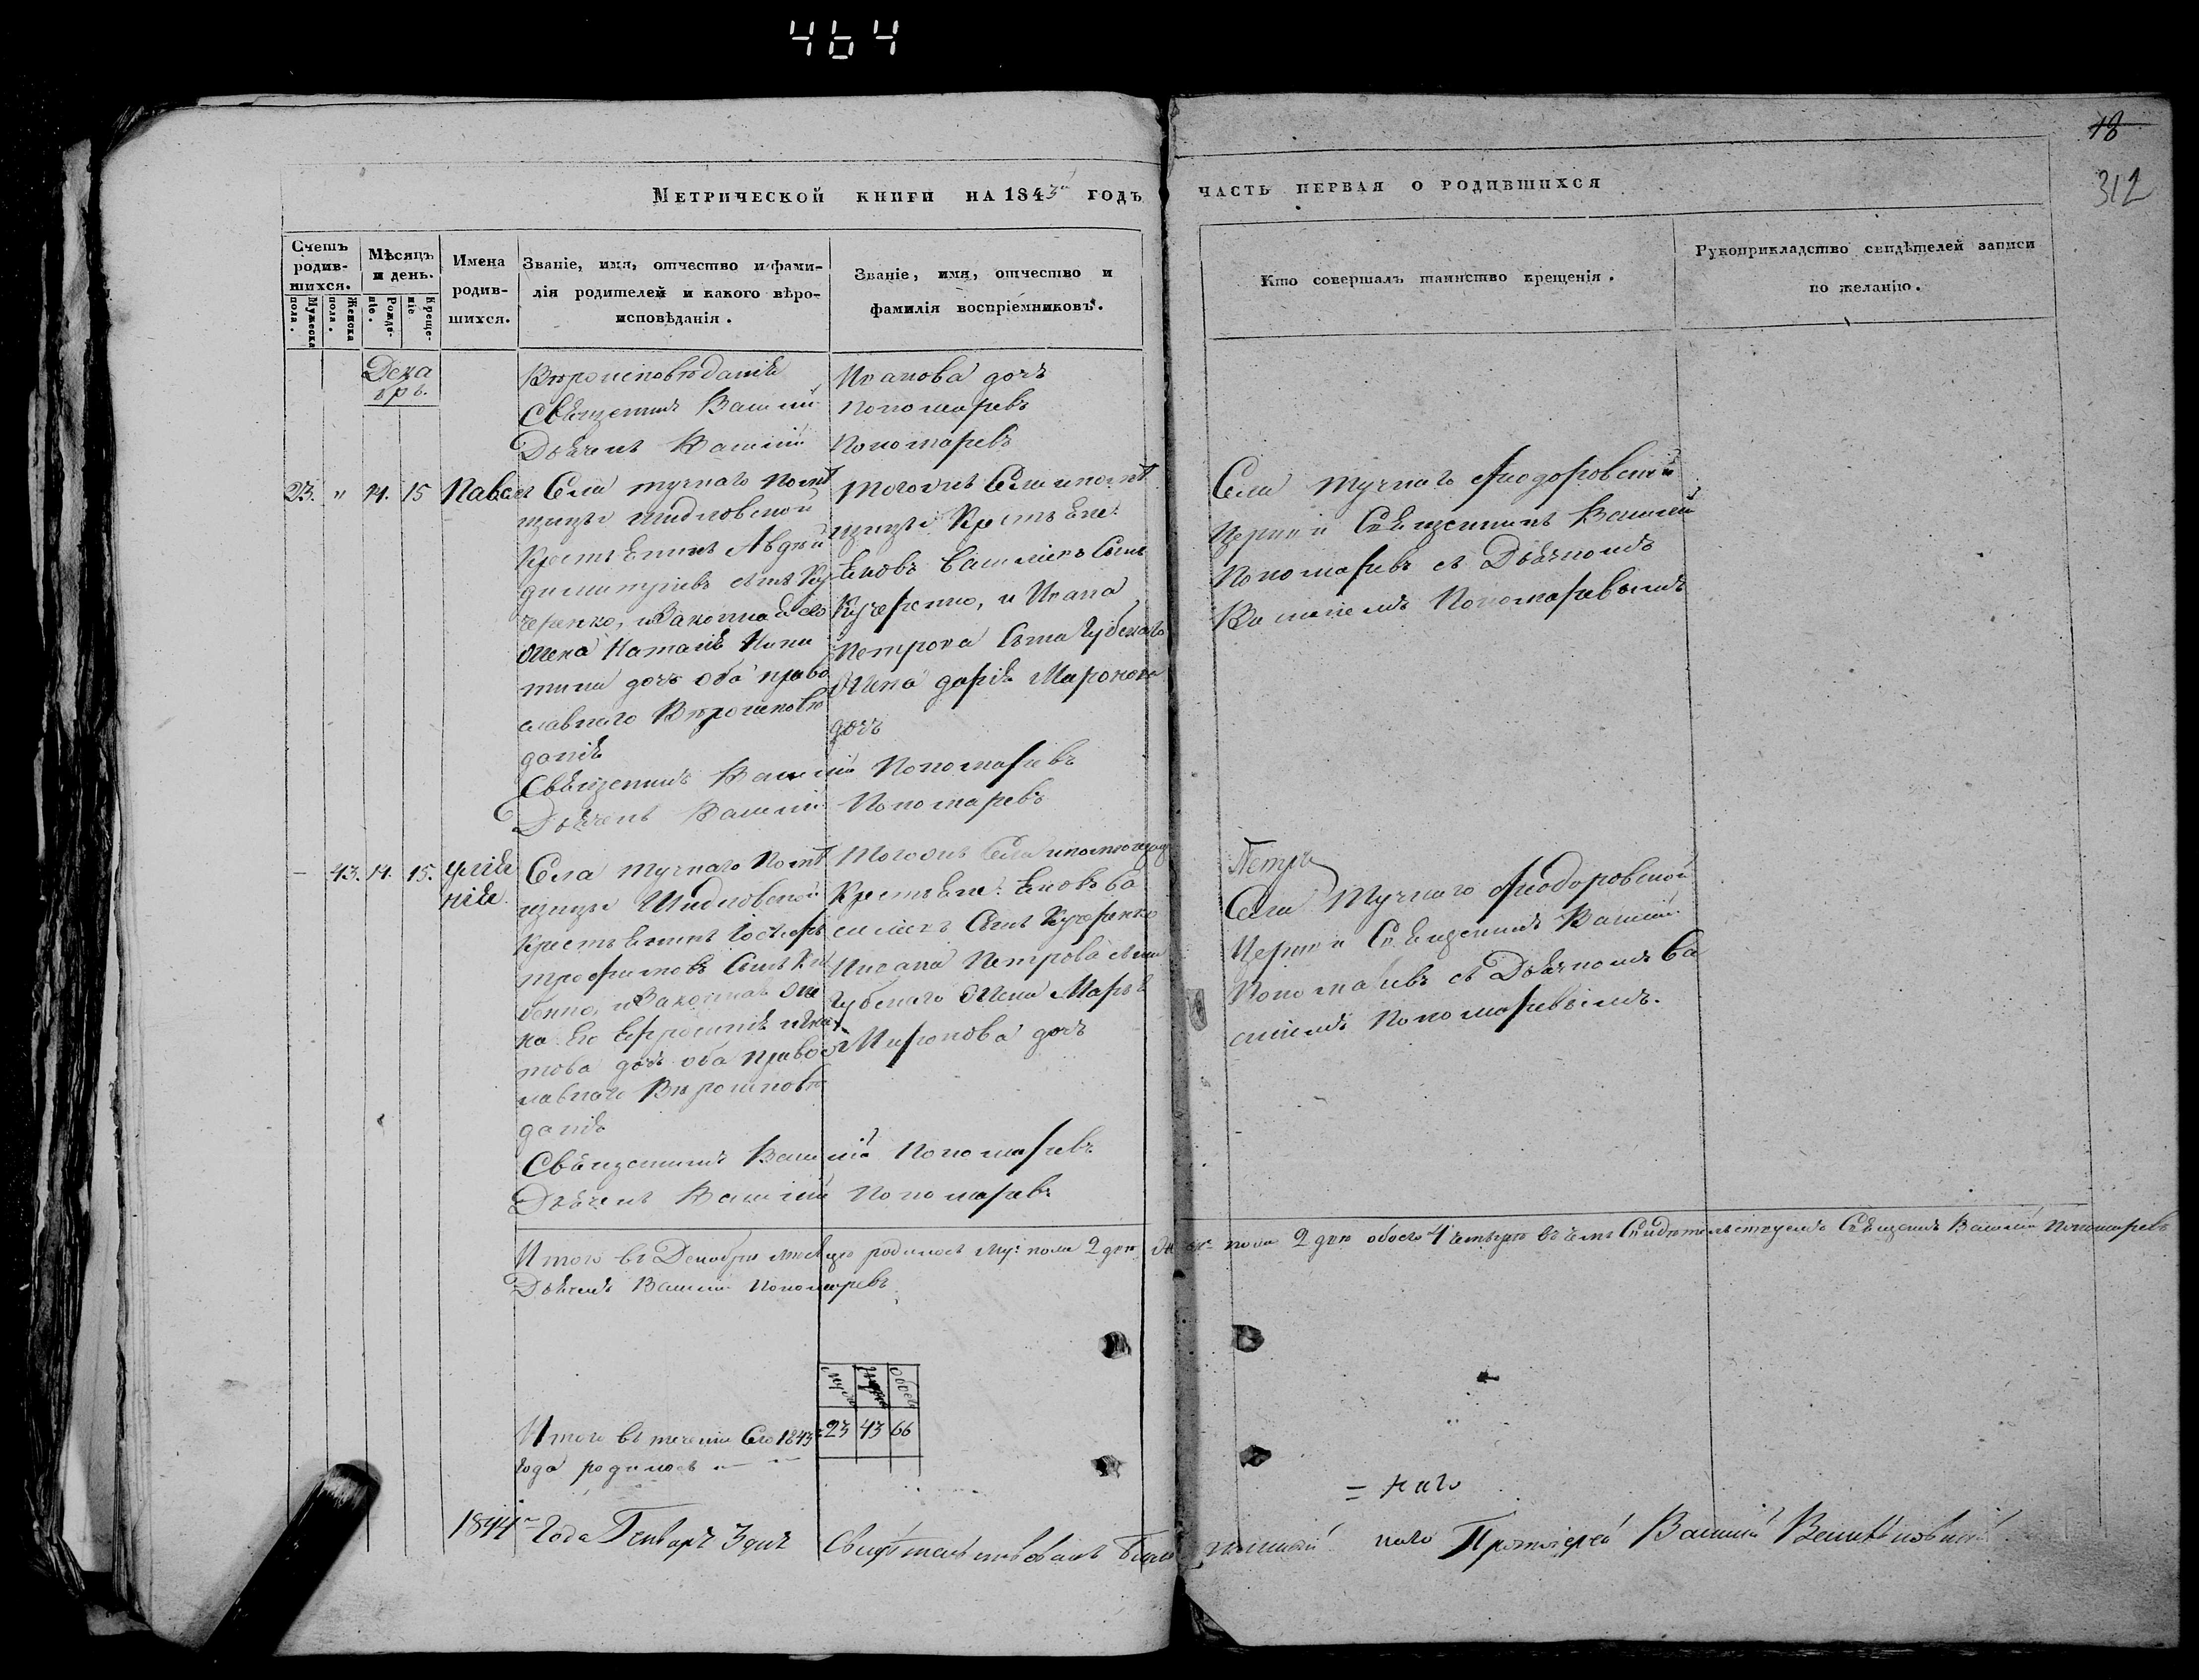 464
18
312
Метрической книги на 1843й годъ
часть первая о родившихся
Счетъ родив-шихся.
Мужеска пола.
Женска пола.
Мѣсяцъ и день.
Рожде-ніе.
Креще-ніе
Имена родив-шихся.
Званіе, имя, отчество и фами-
лія родителей и какого вѣро-
исповѣданія.
Званіе, имя, отчество и
фамилія воспріемниковъ.
Кто совершалъ таинство крещенія.
Рукоприкладство свидѣтелей записи
по желанію.
Дека
брь.
Вѣроисповѣданія
Священникъ Василій
Дьячекъ Василій
Иванова дочь
Пономаревъ
Пономаревъ
23. " 14. 15 Павелъ
Села Тучнаго помѣ
щицы Шидловской
Крестьянинъ Авдѣй
Димитріевъ сынъ Ку
черенко, и законная его
жена Наталія Ники
тина дочь оба право
славнаго Вѣроисповѣ
данія
Священникъ Василій Пономаревъ
Дьячекъ Василій Пономаревъ
Тогожъ Села и помѣ
щицы Крестьяне:
Яковъ Васильевъ Сынъ
Кучеренко, и Ивана
Петрова Сына Губскаго
Жена Дарія Миронова
дочь
Села Тучнаго Ѳеодоровской
Церкви Священникъ Василій
Пономаревъ съ Дьячкомъ
Василіемъ Пономаревымъ
– 43. 14. 15. Уліа
нія.
Села Тучнаго помѣ
щицы Шидловской
Крестьянинъ
Трофимовъ Сынъ
и Законная Же
на Его Ефросинія
това дочь оба Правос
лавнаго Вѣроисповѣ
данія
Священникъ Василій Пономаревъ
Дьячекъ Василій Пономаревъ
Тогожъ Села и помѣщицы
Крестьяне: Яковъ Ва
сильевъ Сынъ Кучеренко
Ивана Петрова сына
Губскаго Жена Марья
Миронова дочь
Петръ
Села Тучнаго Ѳеодоровской
Церкви Священникъ Василій
Пономаревъ съ Дьячкомъ Ва
силіемъ Пономаревымъ.
Итого въ Декабрѣ мѣсяцѣ родилось Му: пола 2 два, Же: пола 2 два обоего 4 четыре въ чемъ Свидѣтельствуемъ Священникъ Василій Пономаревъ
Дьячекъ Василій Пономаревъ
Муж
Жен
Обоег
Итого въ теченіи Сего 1843 23 43 66
года родилось – –
= наго
1844го Года Генваря 3 дня Свидѣтельствовалъ наго Протоіерей Василій